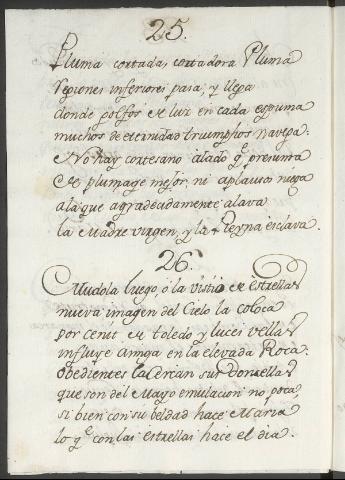 25.
Pluma cortada, cortadora Pluma
regiones inferiores pasa, y llega
donde golfos de luz en cada espuma
muchos de eternidad triumphos navega:
No hay cortesano alado q.e presuma
de plumage mejor, ni aplausos niega
a la que agradecidamente alava
la Madre virgen, y la Reyna esclava.
26.
Mudola luego, o la vistió de estrellas
nueva imagen del Cielo la coloca
por cenit de Toledo y luces bellas
influye amiga en la elevada Roca:
Obedientes la cercan sus donzellas
que son del Mayo emulacion no poca,
si bien con su beldad hace Maria
lo q.e con las estrellas hace el dia.